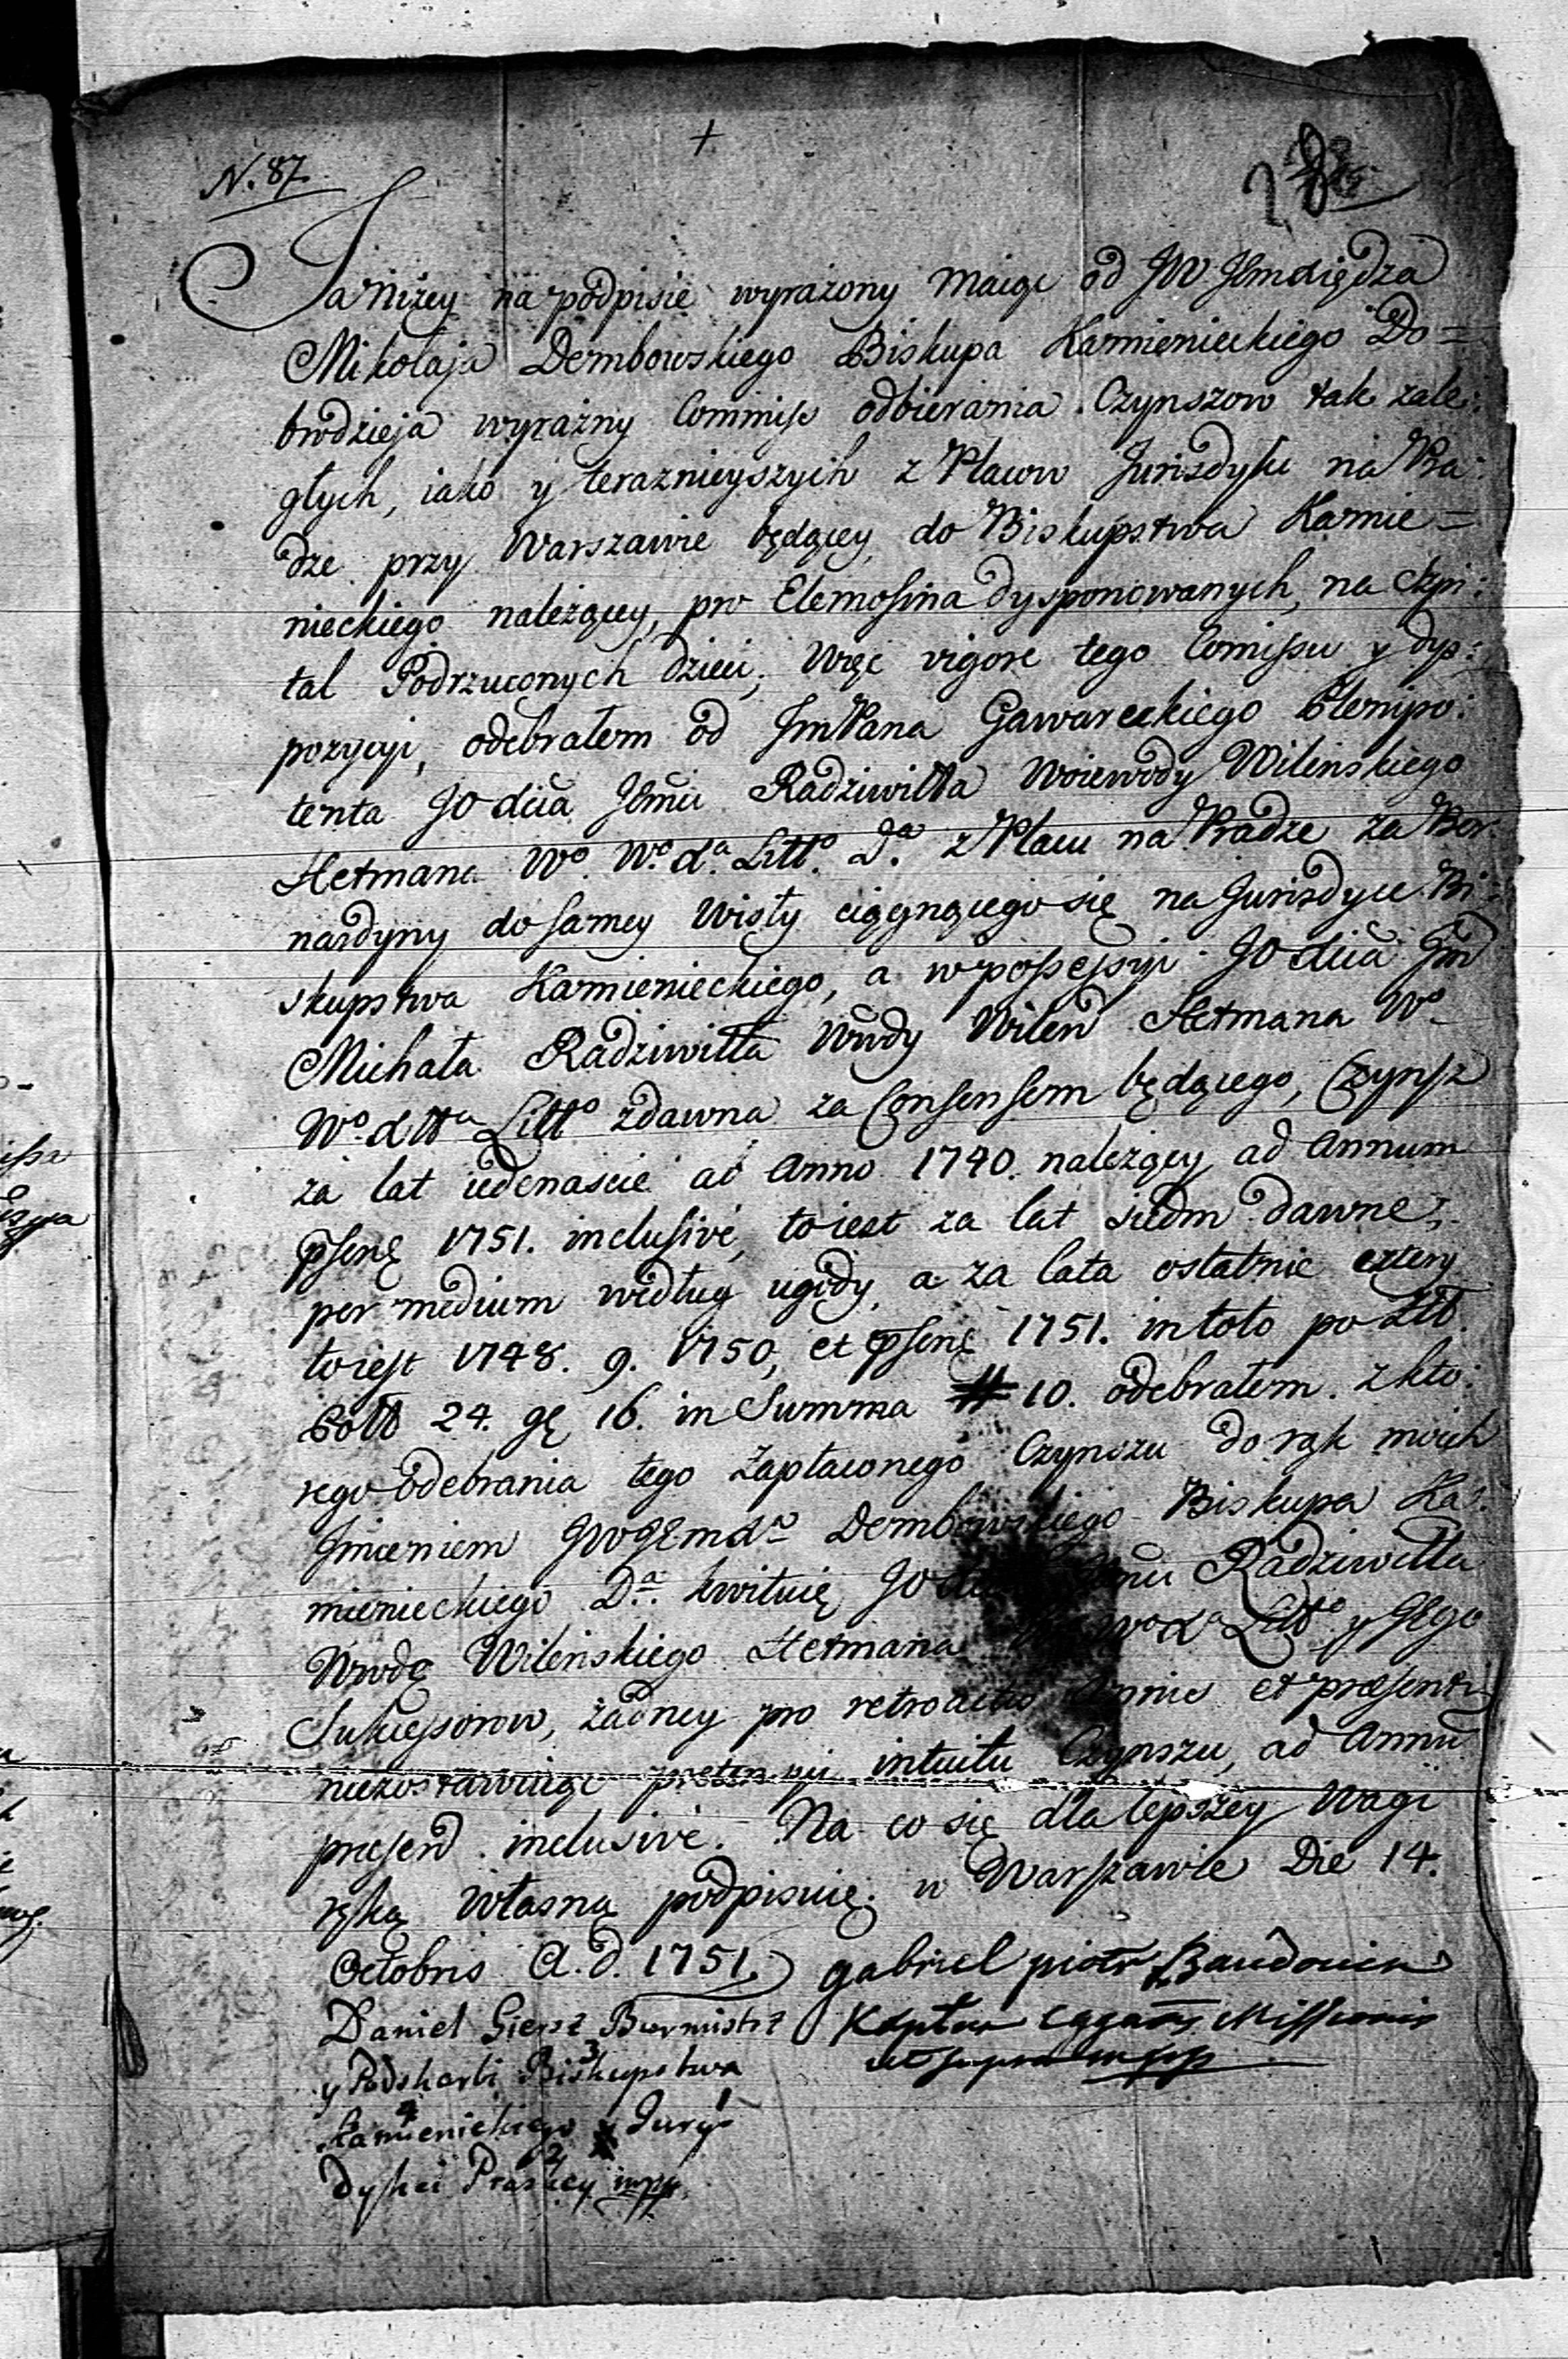 N. 87.
+
Ja niżey na podpisie wyrażony maiąc od JW Jmciędza
Mikołaja Dembowskiego Biskupa Kamienieckiego Do=
brodzieja wyraźny Commiss odbierania Czynszow tak zale:
głych, iako y teraznieyszych z Placow Jurisdyki na Pra:
dze przy Warszawie będącey, do Biskupstwa Kamie=
nieckiego należącey, pro Elemosina dysponowanych, na Szpi:
tal Podrzuconych dzieci, Więc vigore tego Comissu y dys:
pozycyi, odebrałem od JmPana Gawareckiego Plenipo:
tenta JO Jmci Radziwiłła Woiewody Wilenskiego
Hetmana Wo. Wo. da. Litto. Da. z Placu na Pradze za Ber
nardyny do samey Wisły ciągnącego się na Jurisdyce Bi:
skupstwa Kamienieckiego, a w possessyi JO Jm
Michała Radziwiłła Wwdy Wilen Hetmana Wo
Wo. Litto zdawna za Consensem będącego, Czynsz
za lat iedenaście ab Anno 1740. należący ad Annum
psenę 1751. inclusivè, toiest za lat siedm dawne,
per medium według ugody, a za lata ostatnie cztery
toiest 1748. 9. 1750, et psenę 1751. in toto po
24. gę 16. in Summa # 10. odebrałem. z kto:
rego odebrania tego zapłaconego Czynszu do rąk moich
Jmieniem Dembowskiego Biskupa Ka:
mienieckiego Da. kwituię JO Jmci Radziwiłła
Wwdę Wilenskiego Hetmana Wo da Litto y Jego
Sukcessorow, żadney pro retroactis Annis et præsenti
niezostawuiąc pretensyi intuitu Czynszu, ad Annu
presend. inclusivè. Na co się dla lepszey Wagi
ręką własną podpisuię. w Warszawie Die 14.
Octobris A. D. 1751.) gabriel piotr Baudouin
Daniel Giersz Burmistrz
Missionis
y Podskarbi Biskupstwa
ut supra mpp
Kamienickiego y Jurys
dykci Praskey mpp.